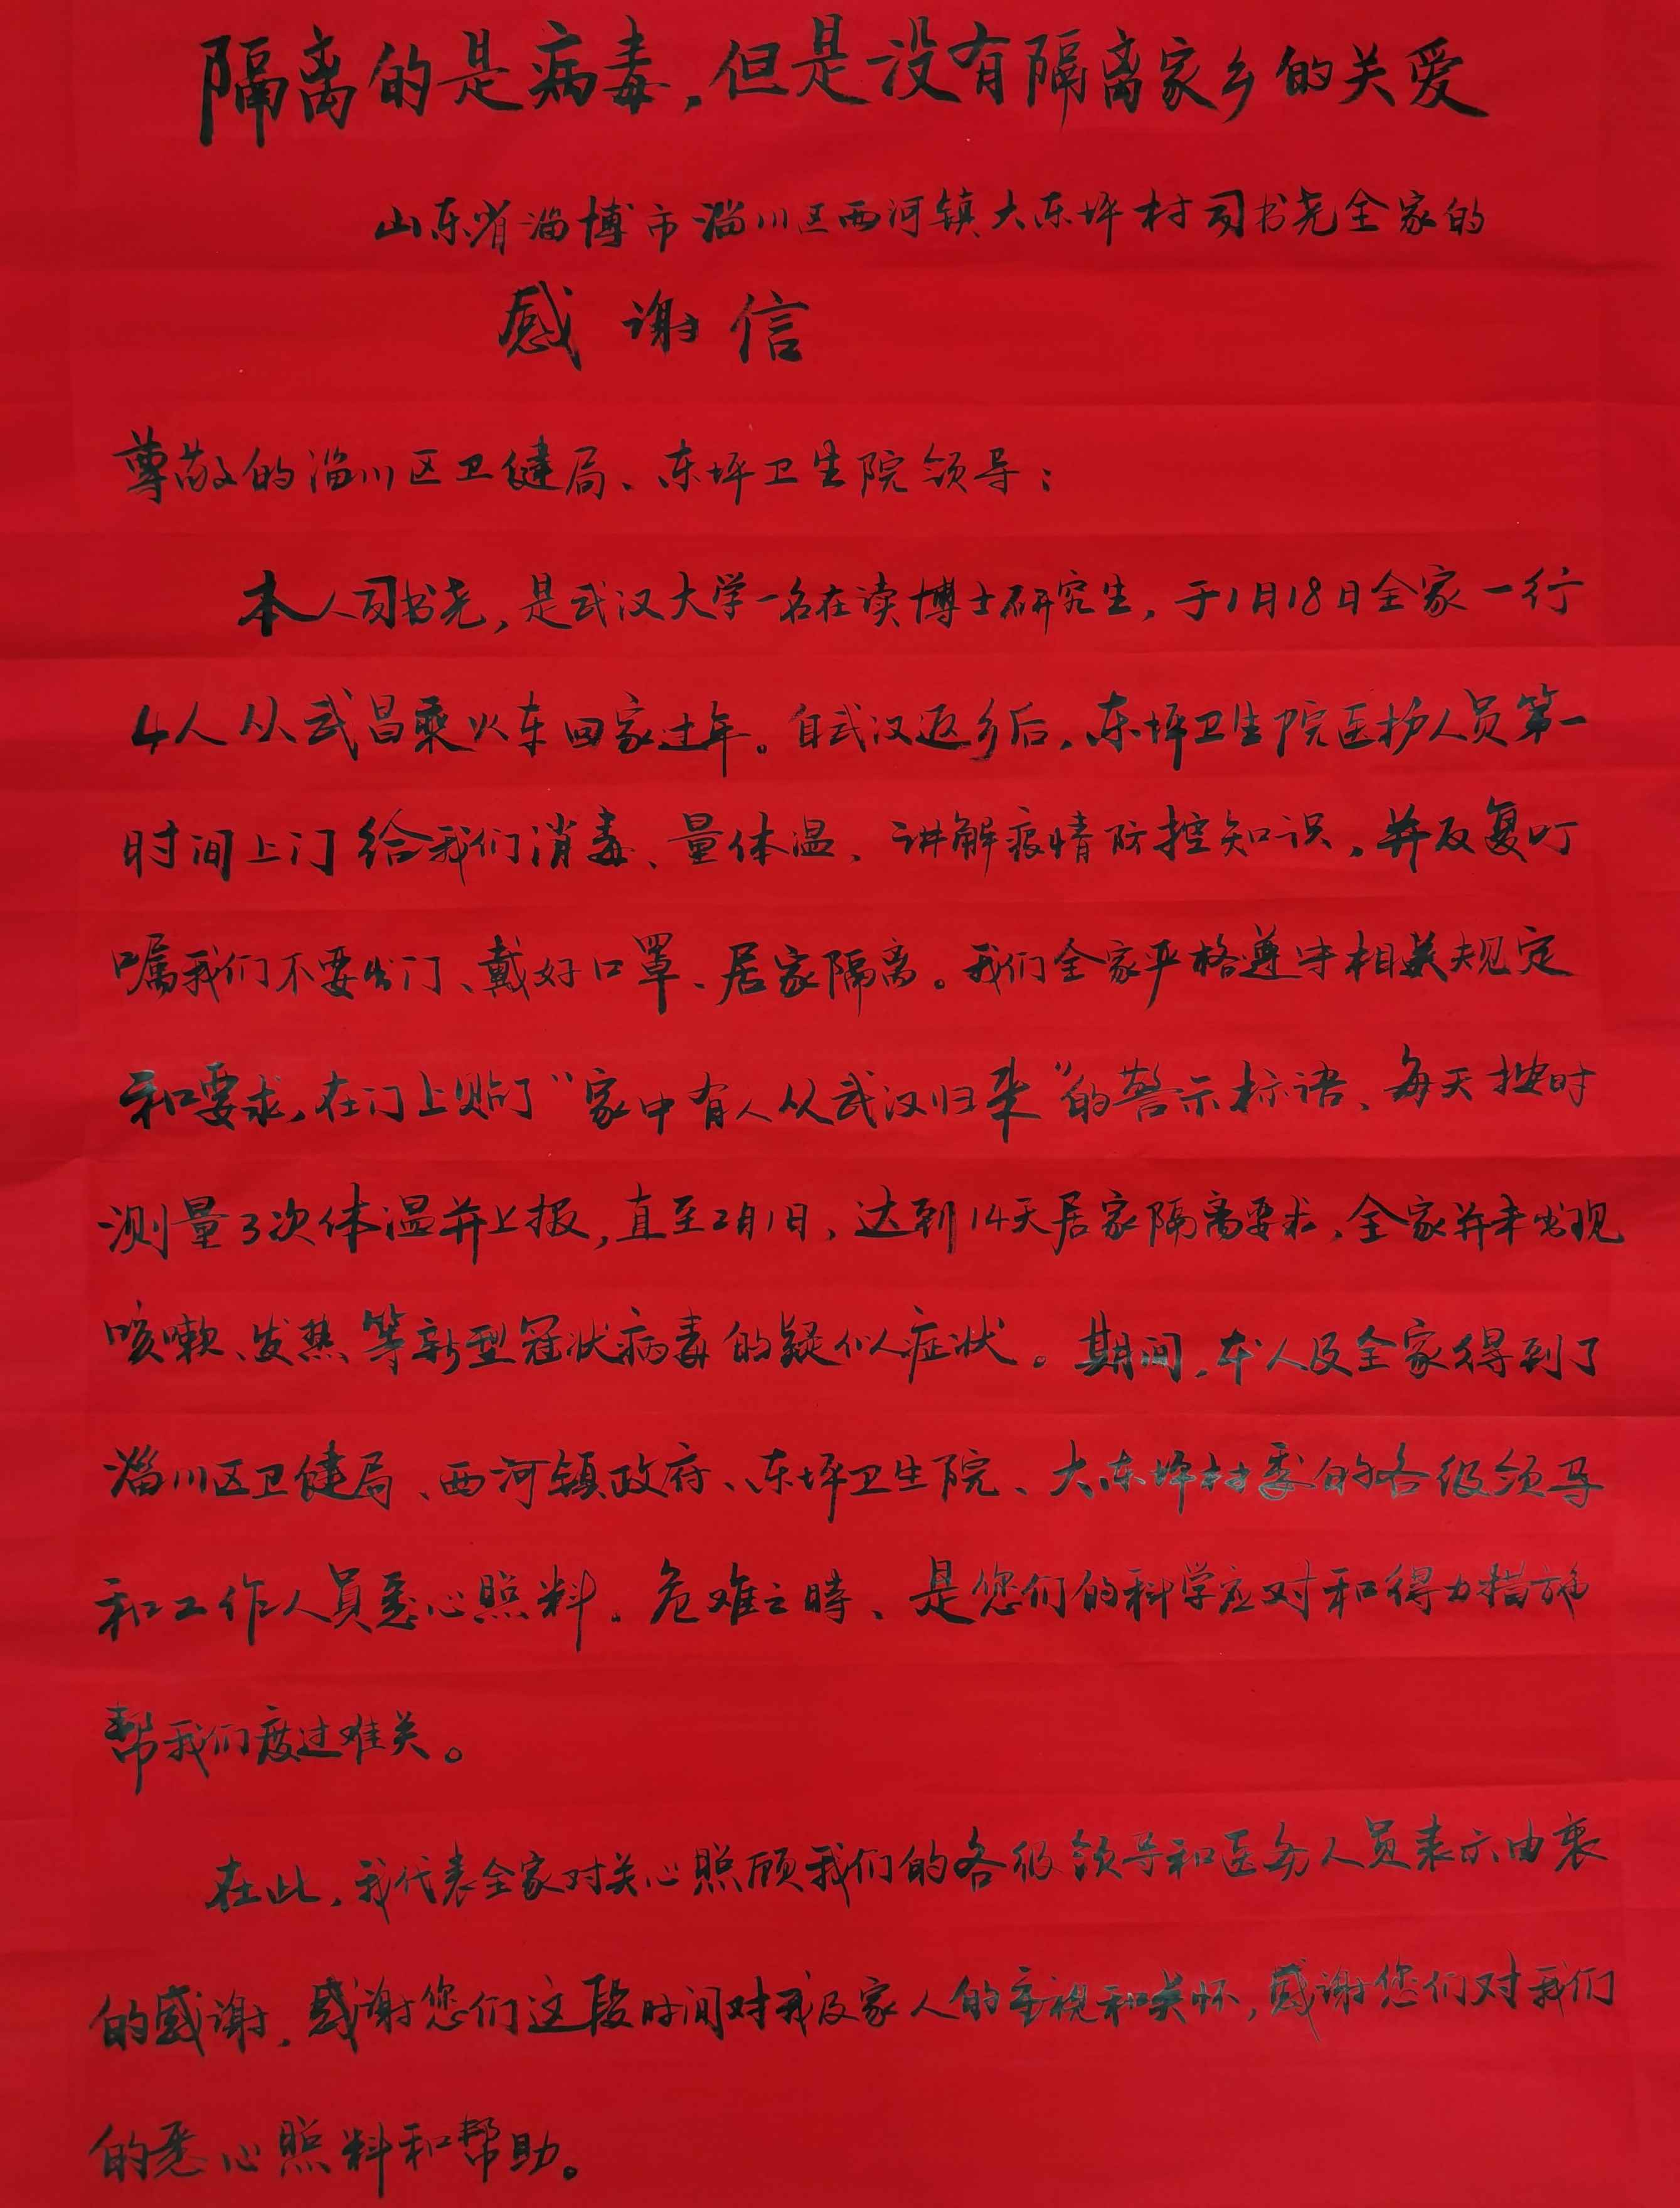 隔离的是病毒，但是没有隔离家乡的关爱
山东省淄博市淄川区西河镇大东坪村司书尧全家的
感谢信
尊敬的淄川区卫健局、东坪卫生院领导：
本人司书尧，是武汉大学一名在读博士研究生，于1月18日全家一行
4人从武昌乘火车回家过年。自武汉返乡后，东坪卫生院医护人员第一
时间上门给我们消毒、量体温、讲解疫情防控知识，并反复叮
嘱我们不要出门、戴好口罩、居家隔离。我们全家严格遵守相关规定
和要求，在门上贴了“家中有人从武汉归来”的警示标语、每天按时
测量3次体温并上报，直至2月1日，达到14天居家隔离要求，全家并未出现
咳嗽、发热等新型冠状病毒的疑似症状。期间，本人及全家得到了
淄川区卫健局、西河镇政府、东坪卫生院、大东坪村委的各级领导
和工作人員悉心照料。危难之時、是您们的科学应对和得力措施
帮我们度过难关。
在此，我代表全家对关心照顾我们的各级领导和医务人员表示由衷
的感谢，感谢您们这段时间对我及家人的重視和关怀，感谢您们对我们
的悉心照料和帮助。